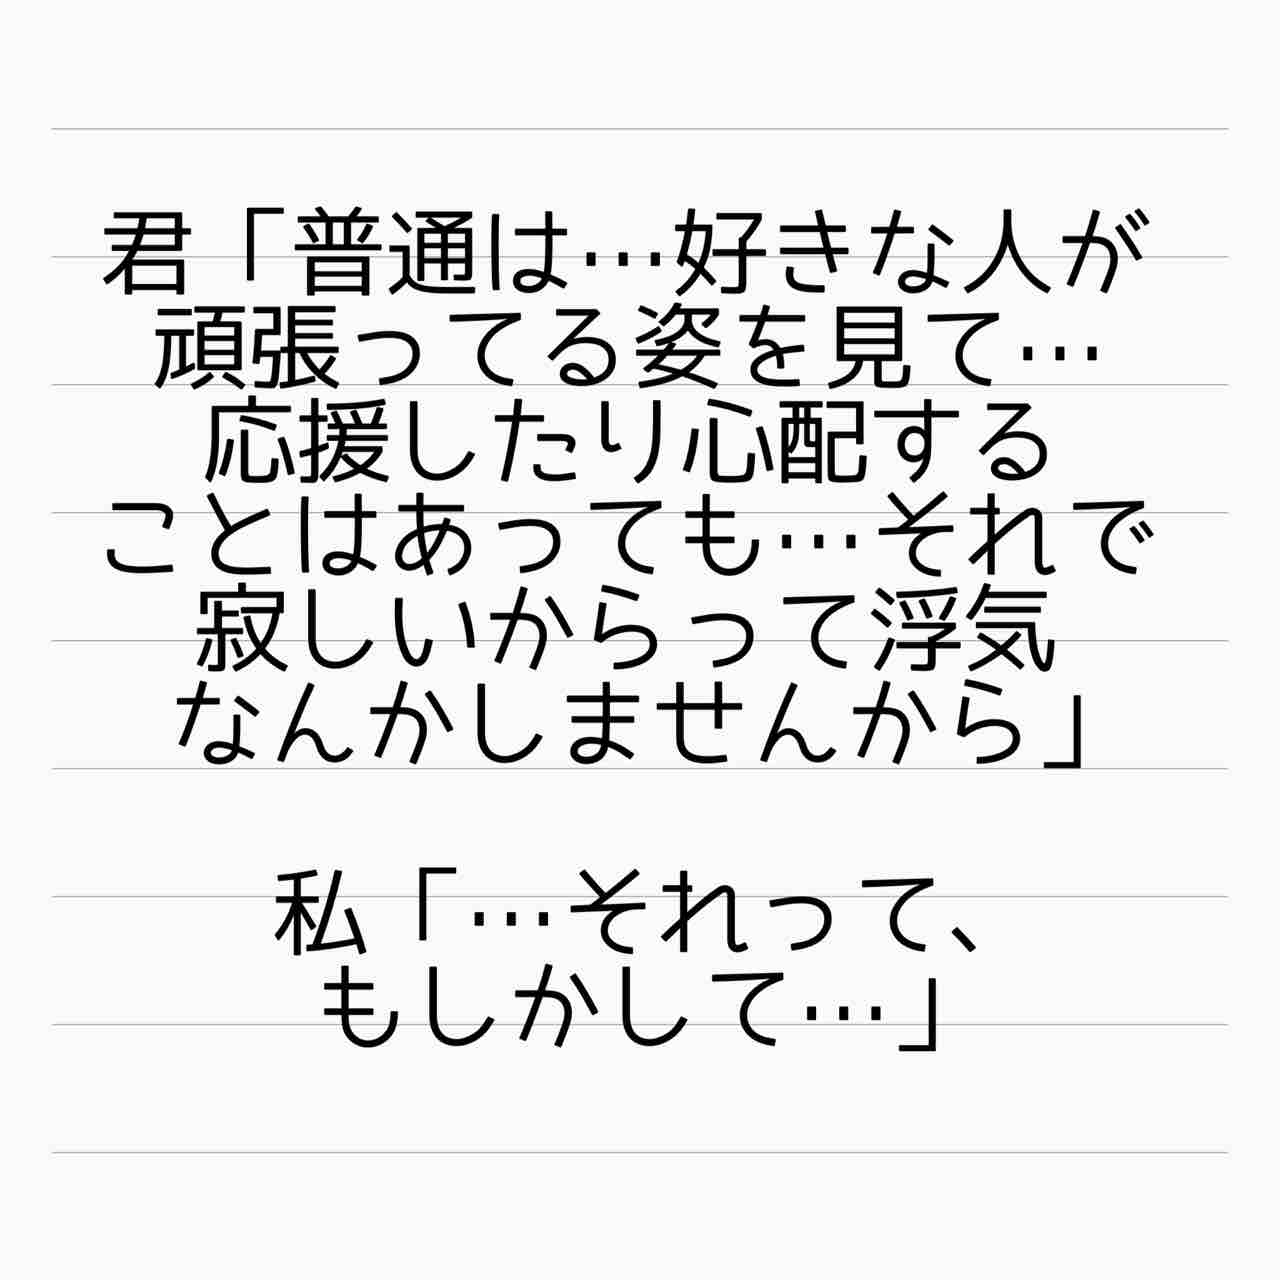 君「普通は…好きな人が
頑張ってる姿を見て…
応援したり心配する
ことはあっても…それで
寂しいからって浮気
なんかしませんから」
私「…それって、
もしかして…」